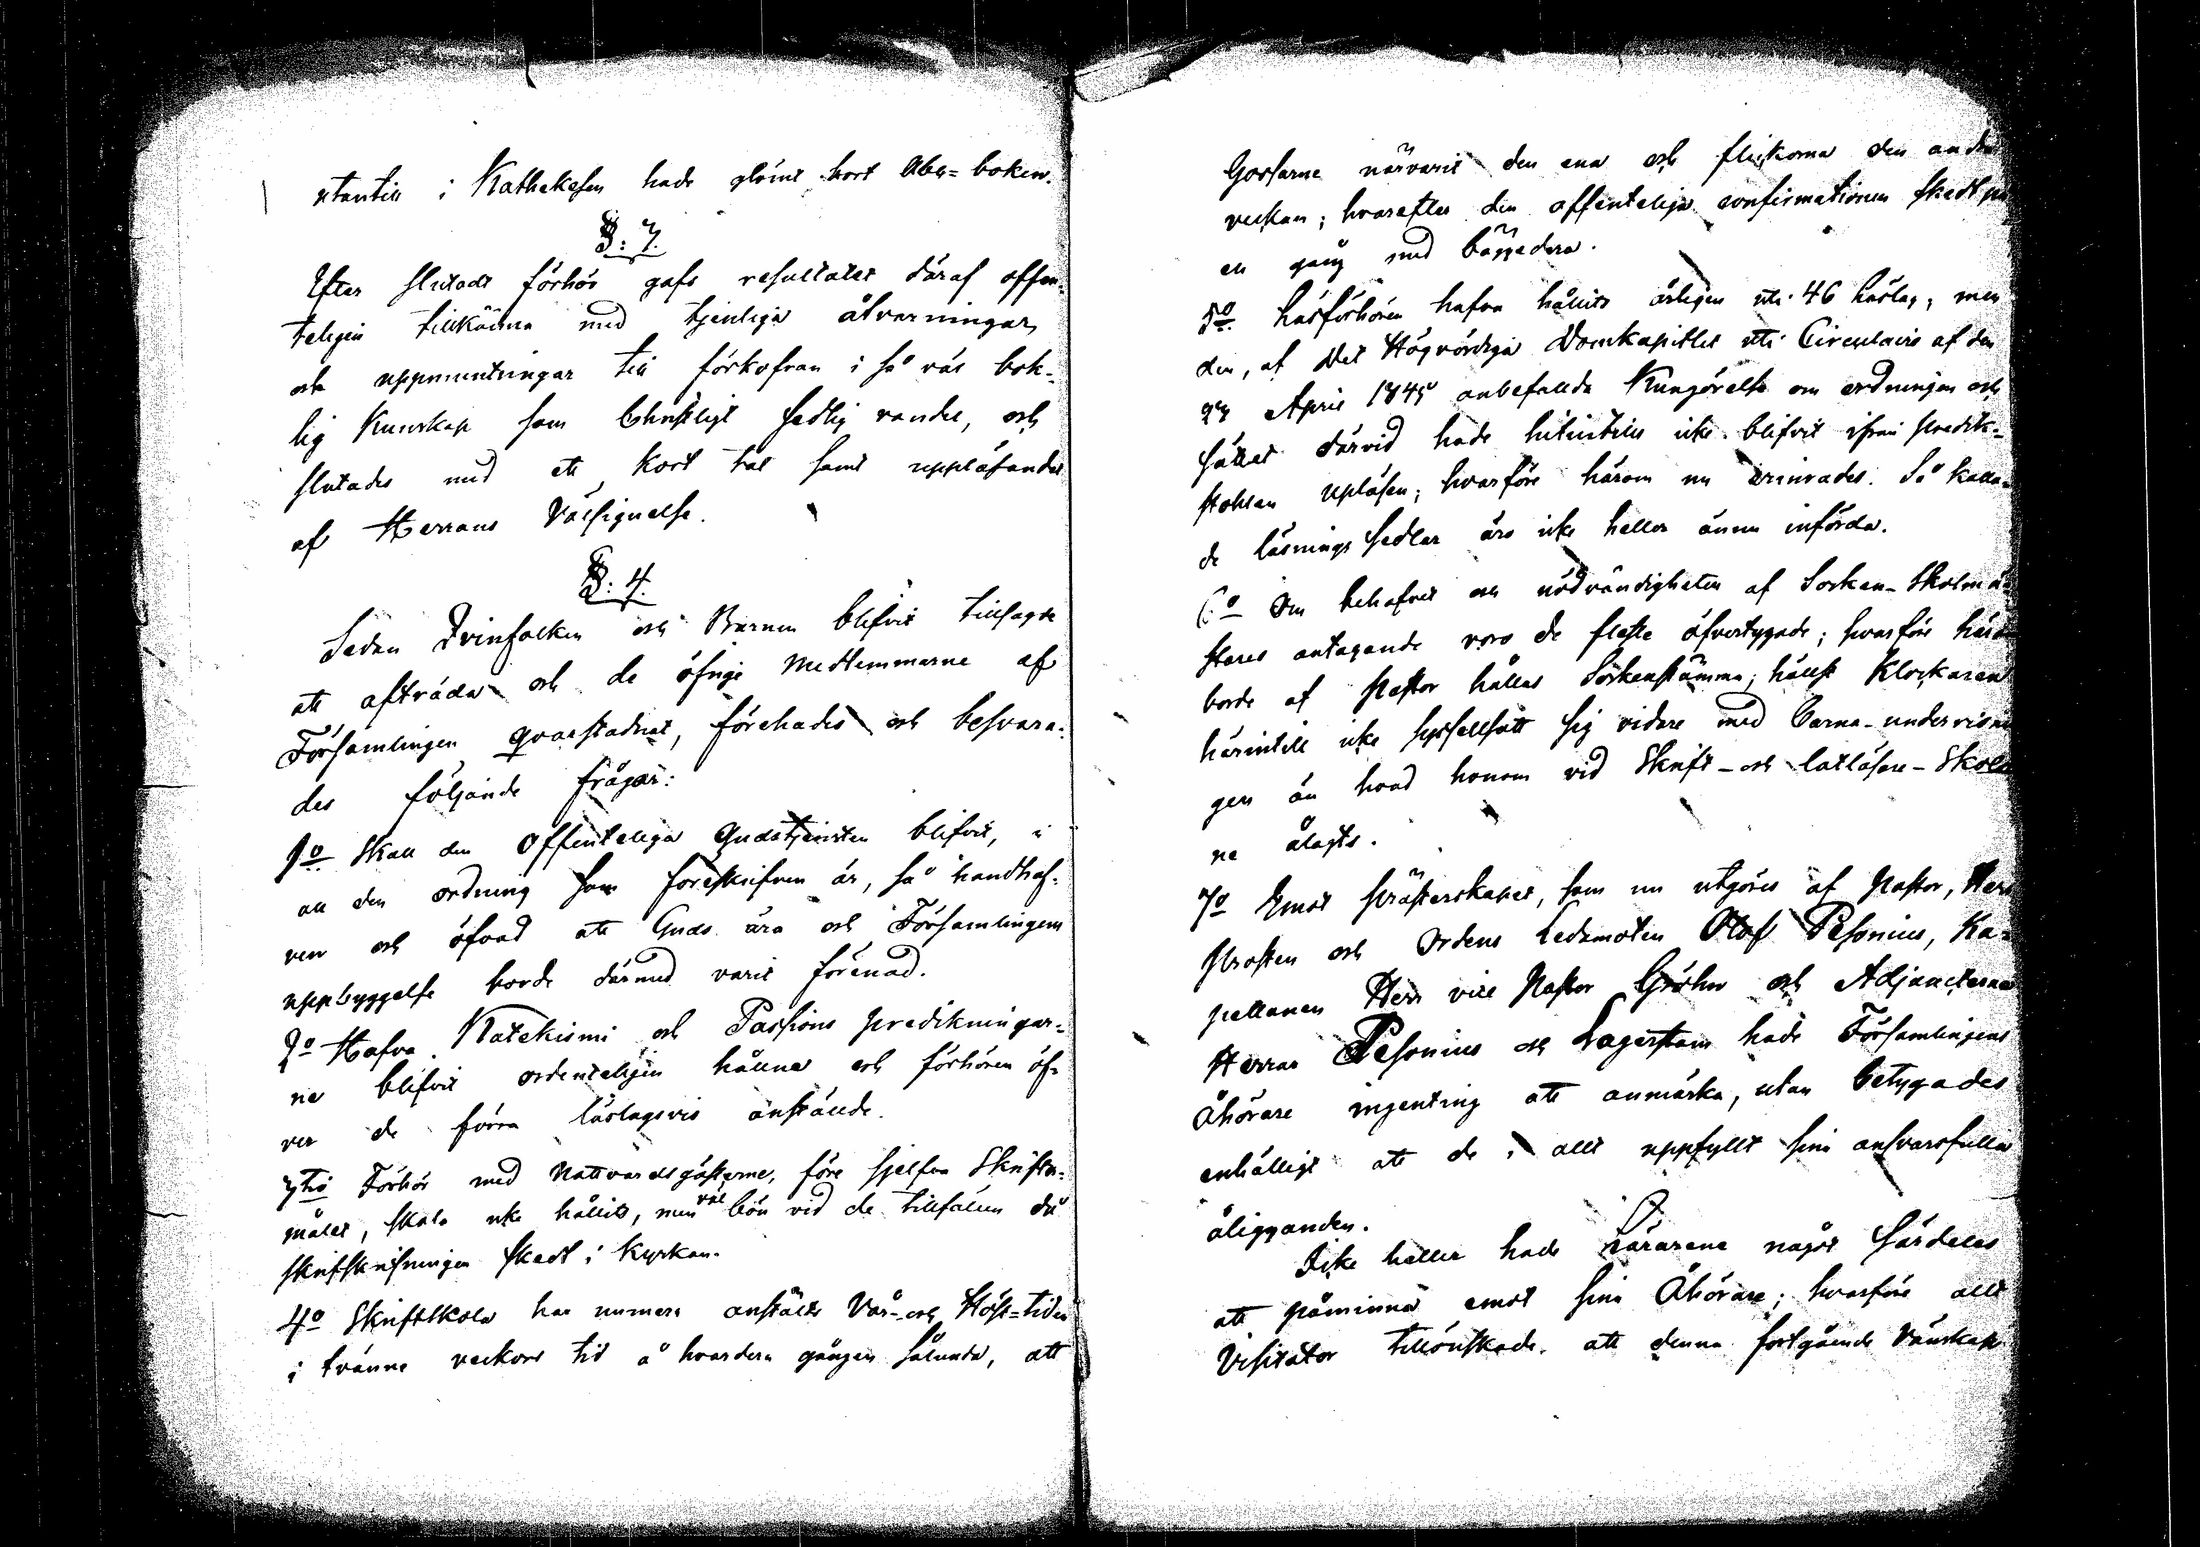 utantill i Kathekesen hade glömt bort Abc=boken.
§. 3.
Efter slutadt förhör gafs resultatet däraf offen-
teligen tillkänna med tjenliga åtvarningar
och uppmuntringar till förkofran i så väl bok-
lig Kunskap som Christligt sedlig vandel, och
slutades med ett kort tal samt uppläsandet
af Herrans Välsignelse.
§. 4.
Sedan Qvinfolken och Barnen blifvit tillsagde
att afträda och de öfrige Medlemmarne af
Församlingen qvarstadnat, förehades och besvara-
des följande frågor:
1o Skall den Offenteliga Gudstjensten blifvit, i
all den ordning som föreskrifven är, så handhaf-
ven och öfvad att Guds ära och Församlingens
uppbyggelse borde därmed varit förenad.
2o Hafva Katekismi och Passions predikningar-
ne blifvit ordenteligen hållne och förhören öf-
ver de förra läslagsvis anstände.
3tio Förhör med Nattvardsgästerne, före sjelfva Skrifte-
målet, skola icke hållits, men väl bön vid de tillfällen då
skriftskrifningen skedt i Kyrkan.
4o Skriftskola har numera anställts Vår- och Höst=tiden
i tvänne veckors tid å hvardera gången sålunda, att
Gossarne närvarit den ena och flickorna den andra
veckan; hvarefter den offenteliga confirmationen skedt på
en gång med bäggedera.
5o Läsförhören hafva hållits årligen uti 46 läslag, men
den, af Det Högvördiga Domkapitlet uti Circulaire af den
April 1845 anbefallda Kungörelse om ordningen och
sättet därvid hade hitintills icke blifvit ifrån predik-
stohlen upläsen; hvarföre härom nu erinrades. Så kalla-
de läsnings sedlar äro icke heller ännu införda.
6o Om behofvet och nödvändigheten af Socken-Skolmä-
stares antagande voro de fleste öfvertygade; hvarföre härom
borde af Pastor hållas Sockenstämma, hälst Klockaren
härintill icke sysselsatt sig vidare med Barna-undervisnin
gen än hvad honom vid Skrift- och lattläsare-Skolor
ne ålagts.
7o Emot Prästerskapet, som nu utgöres af Pastor, Herr
Prosten och Ordens Ledamoten Olof Pesonius, Ka-
pellanen Herr vice Pastor Gröhn och Adjuncterne
Herrar Pesonius och Lagerstam hade Församlingens
Åhörare ingenting att anmärka, utan betygades
enhälligt att de i allt uppfyllt sine ansvarsfulla
åligganden.
Icke heller hade Lärarene något särdeles
att påminna emot sine Åhörare; hvarföre allt
Visitator tillönskade att denna fortgående Vänskap